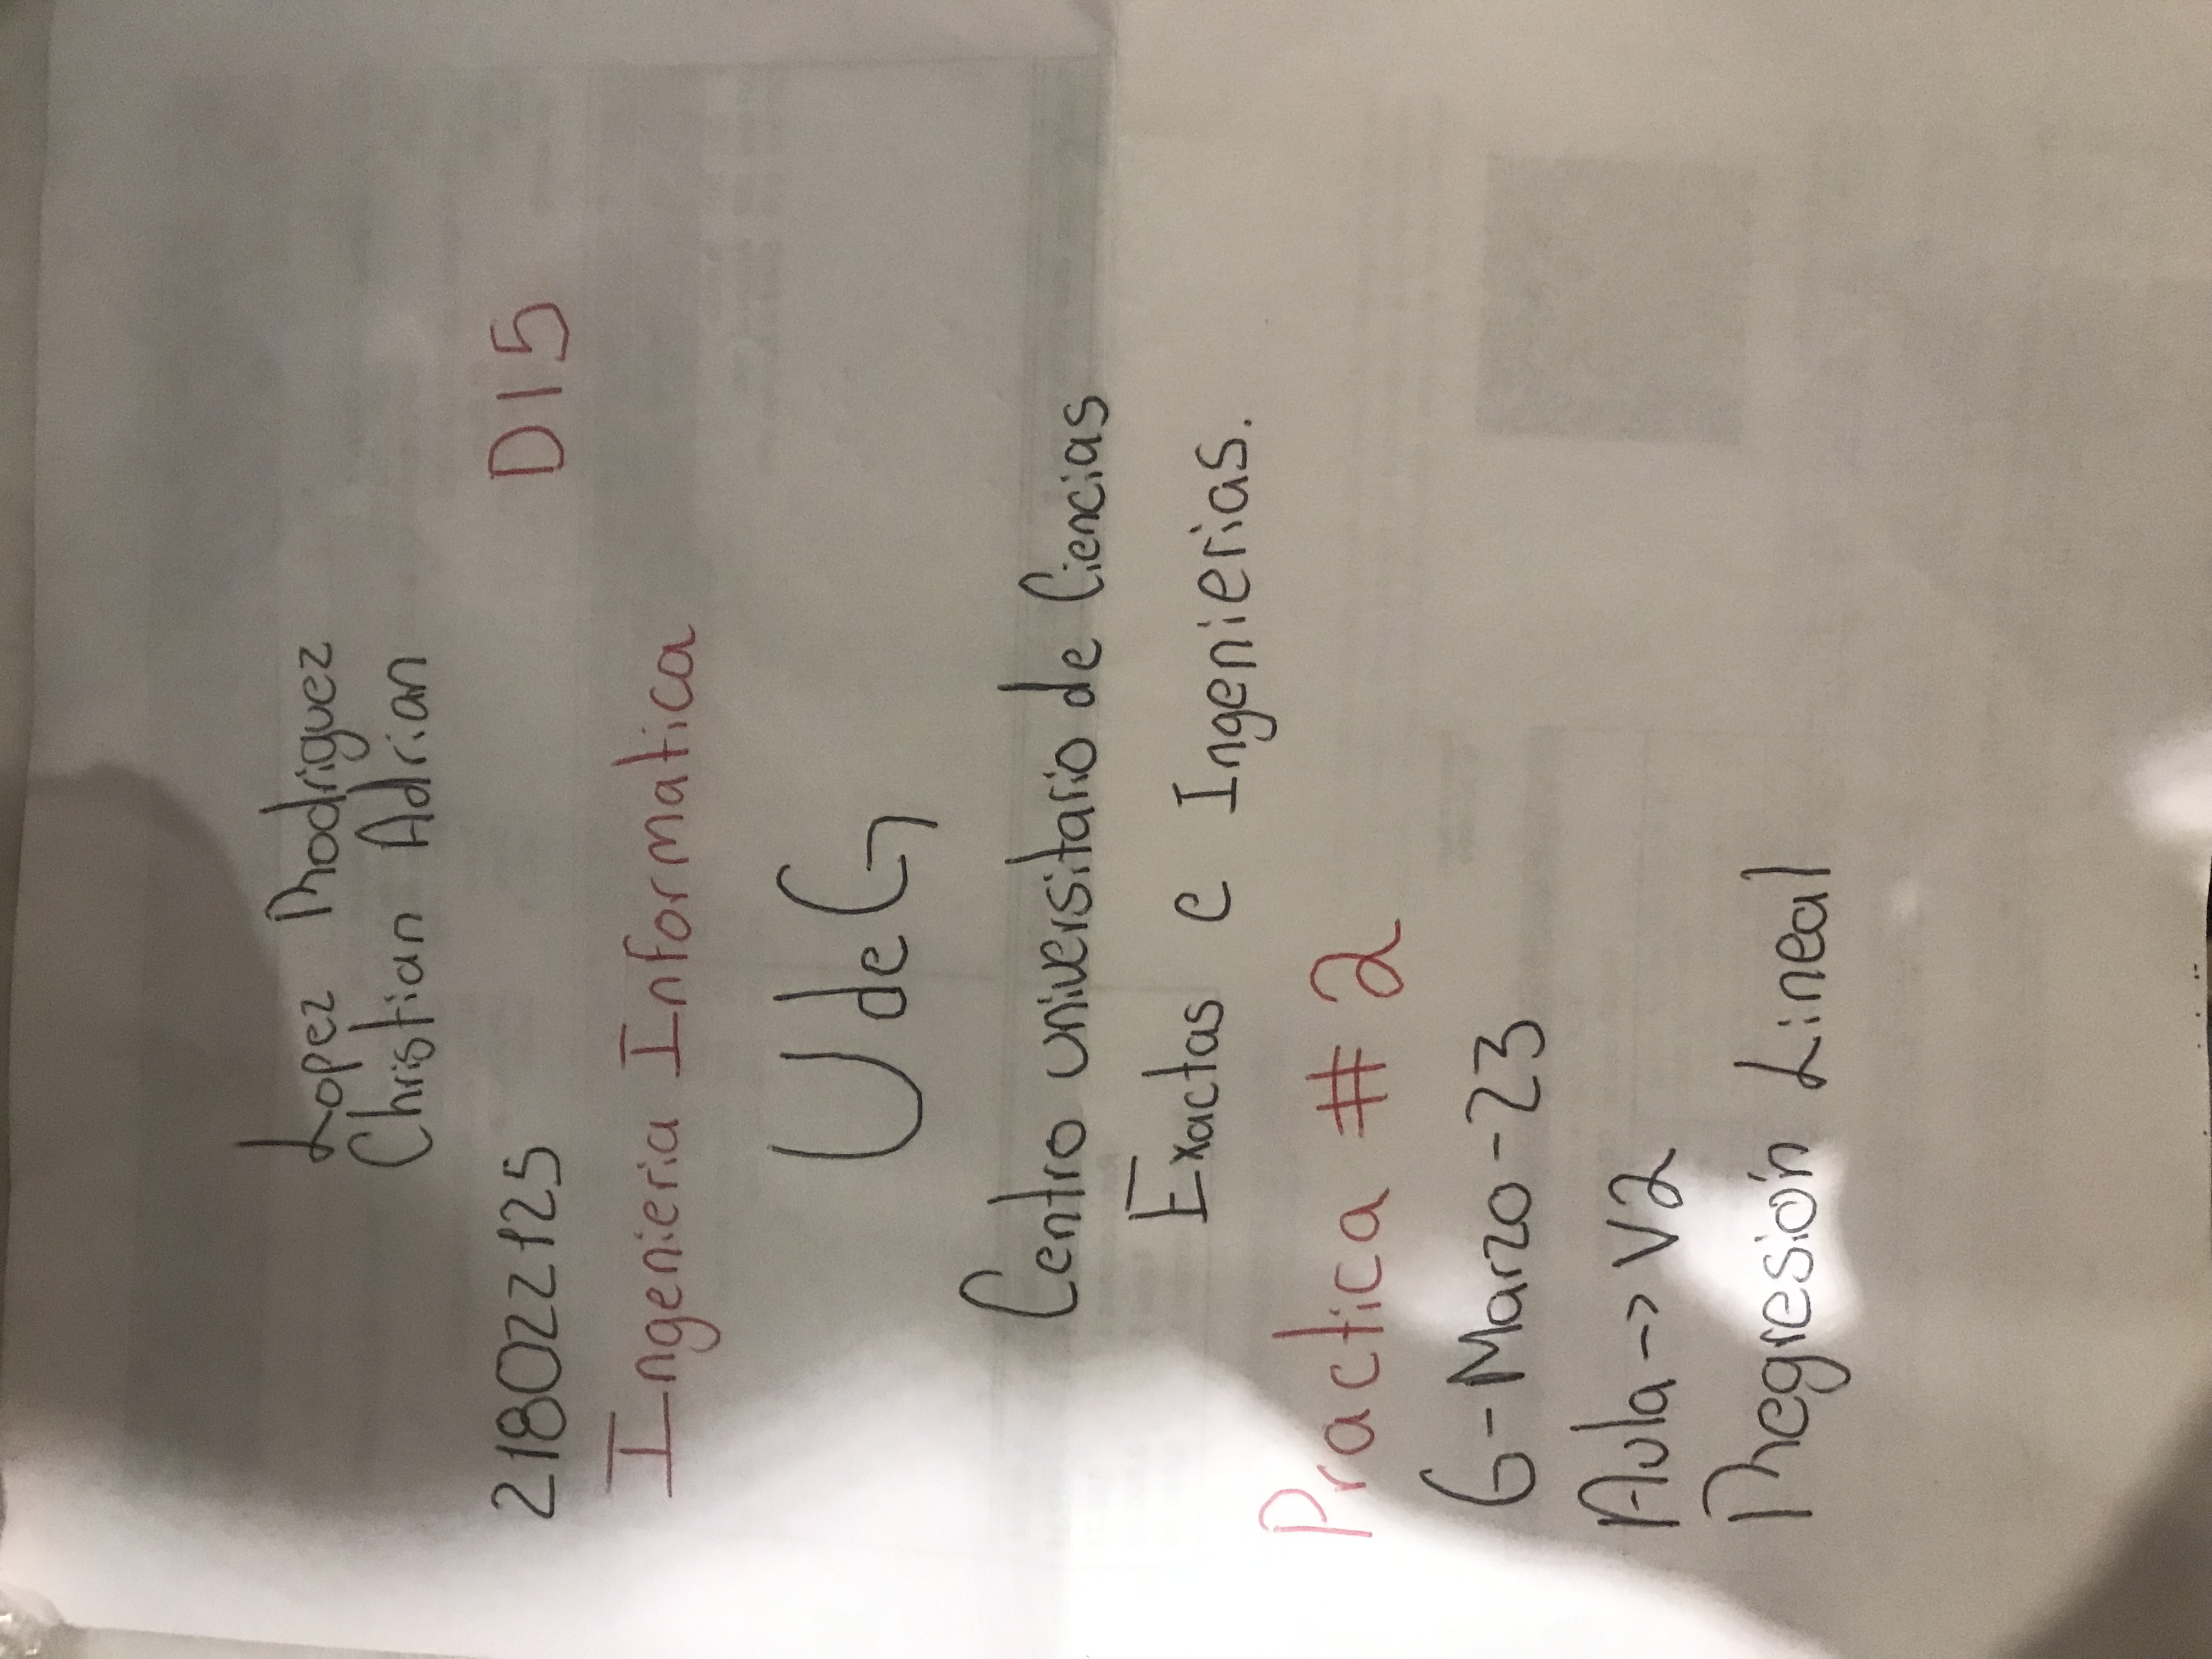 Lopez Rodriguez
Christian Adrian
218022125 D15
Ingenieria Informatica
U de G
Centro universitario de Ciencias
Exactas e Ingenierias.
Practica # 2
6-Marzo-23
Aula -> V2
Regresión Lineal